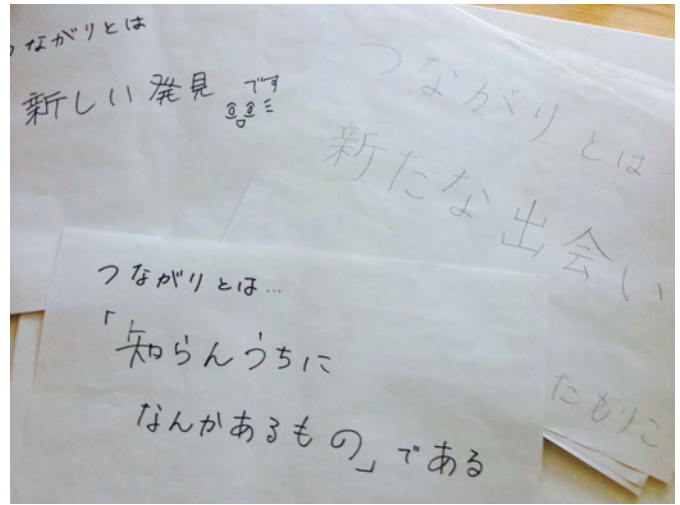 つながりとは
新しい発見です
つながりとは
新たな出会い
たもりこ
つながりとは…
「知らんうちに
なんかあるもの」である